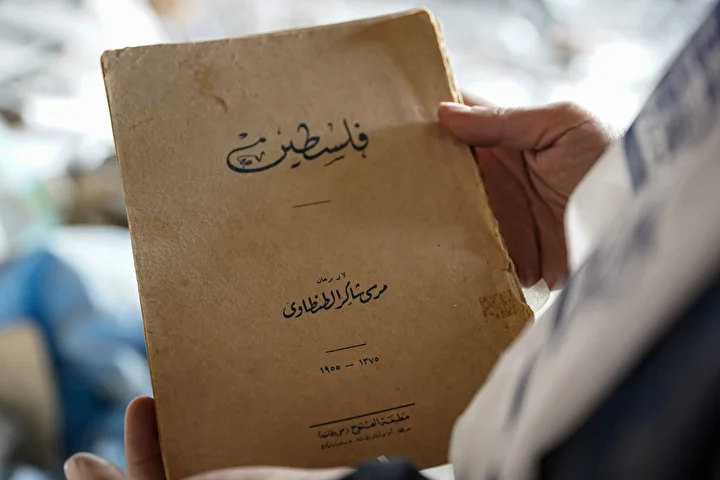 فلسطين
لابى برهان
مرسى شاكر الطنطاوى
١٣٧٥ — ١٩٥٥
مطبعة الفتوح